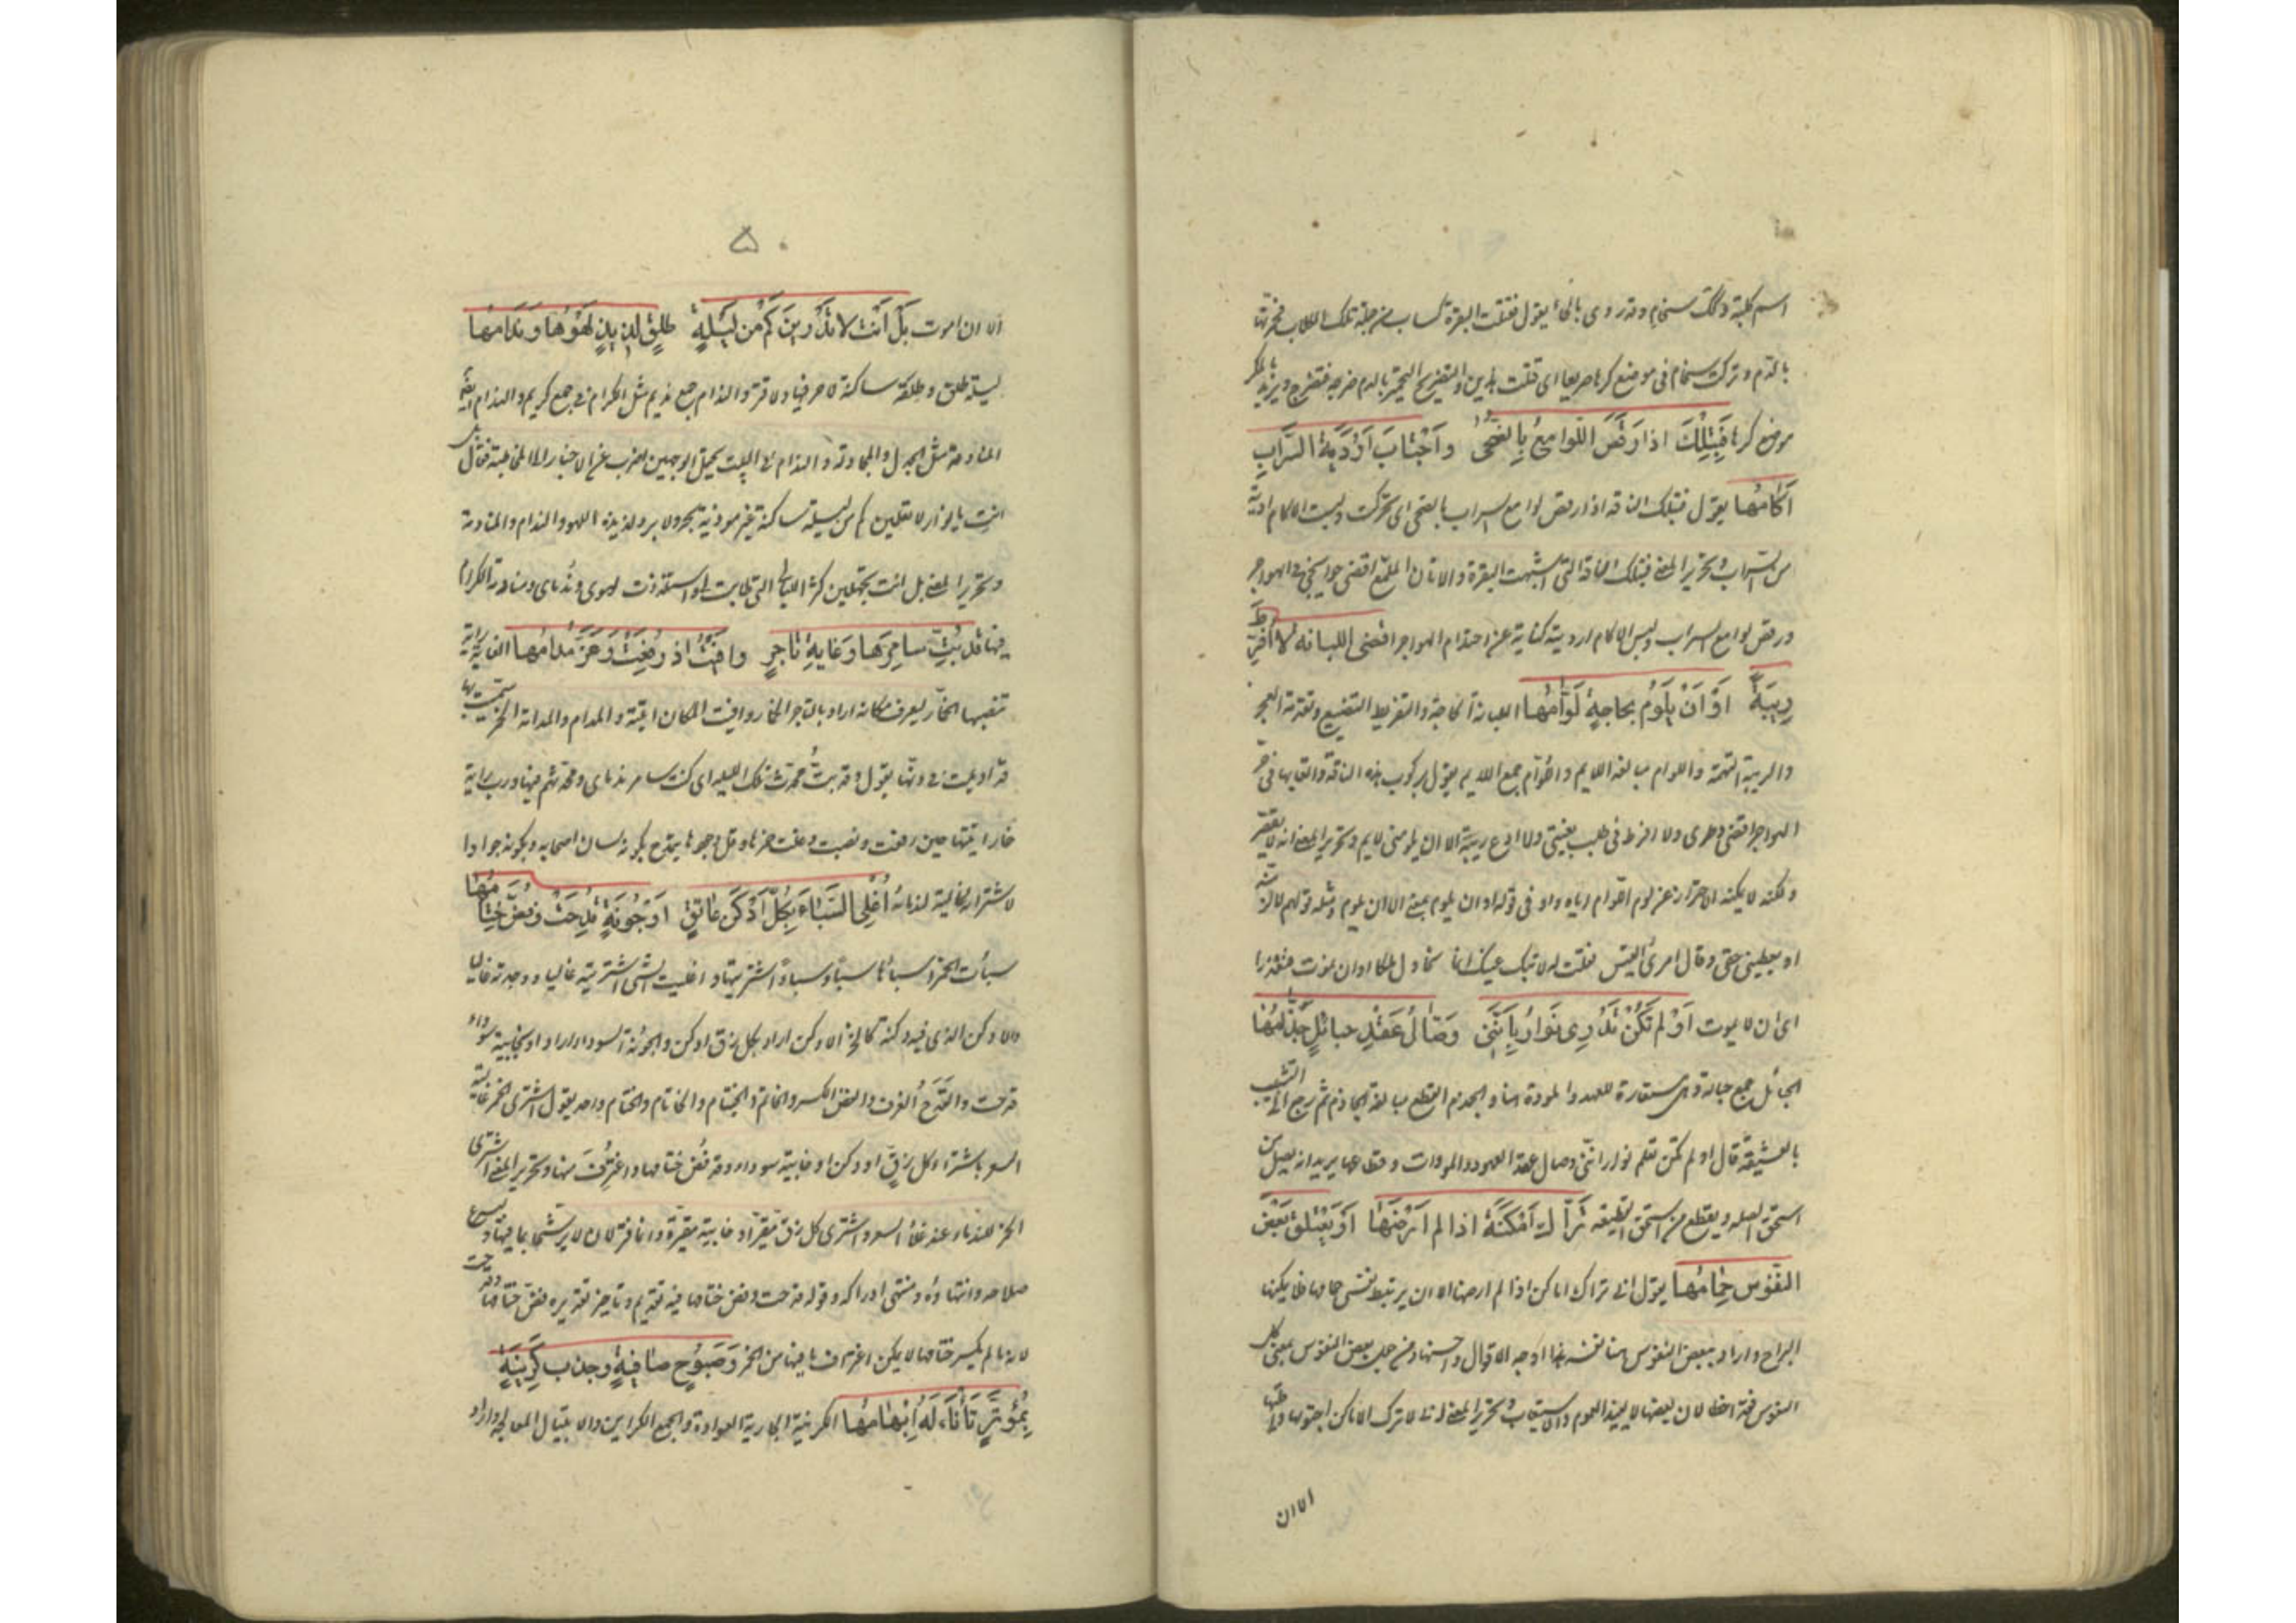 اسم كلبة وكذلك سخام وقد روى بالحاء يقول فقتلت البقرة كساب من جملة تلك الكلاب فحمرتها
بالدم وتركت سخام في موضع كرها صريعا اى قتلت هاتين والتضريج التحمير بالدم ضرجه فتضرج ويريد بالمكر
موضع كرها فَبِتِلْكَ اذا رَقَصَ اللّوامِعُ بِالضُّحى وَاجْتابَ اَرْدِيَةَ السَّرابِ
اَكامُها يقول فبتلك الناقة اذا رقص لوامع السراب بالضحى اى تحركت ولبست الاكام اردية
من السراب وتحرير المعنى فبتلك الناقة التى اشبهت البقرة والاتان الملمع اقضى حوايجى فى الهواجر
ورقص لوامع السراب ولبس الاكام ارديته كناية عن احتدام الهواجر اقضى اللبانة لا افرط
رِيبَةً اَوْ اَنْ يَلُومَ بحاجةٍ لَوّامُها اللبانة الحاجة والتفريط التضييع وتقدمة العجز
والريبة التهمة واللوام مبالغة اللايم واللوام جمع اللايم يقول بركوب هذه الناقة واتعابها فى حر
الهواجر اقضى وطرى ولا افرط فى طلب بغيتى ولا ادع ريبة الا ان يلومنى لايم وتحرير المعنى انه لا يقصر
ولكنه لا يمكنه الاحتراز عن لوم اللوام اياه واو فى قوله او ان يلوم بمعنى الا ان يلوم ومثله قولهم لالزمنه
او يعطينى حقى وقال امرئ القيس فقلت له لا تبك عينك انما نحاول ملكا او ان نموت فنعذرا
اى الا ان نموت اَوَلَم تَكُنْ تَدْرِى نَوارُ بِاَنَّنى وَصّالُ عَقْدِ حبائلٍ جَذّامُها
الحبائل جمع حبالة وهى مستعارة للعهد والمودة هنا والجذم القطع مبالغة الجاذم ثم رجع الى التشبيب
بالعشيقة قال اولم تكن تعلم نوار اننى وصال عقد العهود والمودات وقطاعها يريد انه يصل من
استحق الصلة ويقطع من استحق القطيعة تَرّاكُ اَمْكِنَةٍ اذا لم اَرْضَها اَوْ يَعْتَلِقْ بَعْضَ
النُّفوسِ حِمامُها يقول انى تراك اماكن اذا لم ارضها الا ان يرتبط نفسى حمامها فلا يمكنها
البراح واراد ببعض النفوس هنا نفسه هذا اوجه الاقوال واحسنها ومن جعل بعض النفوس بمعنى كل
النفوس فقد اخطا لان بعضها لا يفيد العموم والاستيعاب وتحرير المعنى انى لا ترك الاماكن اجتويها واقليها
الا ان
٥٠
الا ان اموت بَلْ اَنْتِ لا تَدْرِينَ كَمْ مِن لَيْلَةٍ طَلْقٍ لَذِيذٍ لَهْوُها وَنِدامُها
ليلة طلق وطلقة ساكنة لا حر فيها ولا قر والندام جمع نديم مثل الكرام فى جمع كريم والندام ايضا
المنادمة مثل الجدال والمجادلة والندام فى البيت يحتمل الوجهين اضرب عن الاخبار الى المخاطبة فقال بل
انت يا نوار لا تعلمين كم من ليلة ساكنة غير موذية بحر ولا برد لذيذة اللهو والندام والمنادمة
وتحرير المعنى بل انت تجهلين كثرة الليالى التى طابت لى واستلذذت لهوى وندماى ومنادمة الكرام
فيها قَدْ بِتُّ سامِرَها وَغايةِ تاجِرٍ وافَيْتُ اذ رُفِعَتْ وَعَزَّ مُدامُها الغاية راية
تنصبها الخمار ليعرف مكانه اراد بالتاجر الخمار وافيت المكان اتيته والمدام والمدامة الخمر سميت بها
قد اديمت فى دنها يقول وقد بت محدث تلك الليلة اى كنت سامر ندماى ومحدثهم فيها ورب راية
خمار اتيتها حين رفعت ونصبت وغلت خمرها وقل وجودها يتمدح بكونه لسان اصحابه وبكونه جوادا
لاشترائه غالية لندمائه اُغْلِى السِّباءَ بِكُلِّ اَدْكَنَ عاتِقٍ اَوْ جُونَةٍ قُدِحَتْ وَفُضَّ خِتامُها
سبأت الخمر اسبأها سبأ وسباء اشتريتها واغليت الشى اشتريته غاليا ووجدته غاليا
والادكن الذى فيه دكنة كالخز الادكن اراد بكل زق ادكن والجونة السوداء اراد او خابية سوداء
قدحت والقدح الغرف والفض الكسر والخاتم والخيتام والخاتام والختام واحد يقول اشترى الخمر غالية
السعر باشتراء كل زق ادكن او خابية سوداء وقد فض ختامها واغترف منها وتحرير المعنى اشترى
الخمر للندماء عند غلاء السعر واشترى كل زق مقير او خابية مقيرة وانما قيرتا لان لا يرشحا بما فيهما وليسرع
صلاحه وانتهاؤه ومنتهى ادراكه وقوله قدحت وفض ختامها فيه تقديم وتاخير تقديره فض ختامها وقدحت
لانه ما لم يكسر ختامها لا يمكن اغتراف ما فيها من الخمر وَصَبُوحِ صافِيةٍ وجذبِ كَرِينَةٍ
بِمُوَتَّرٍ تَأْتالُهُ اِبْهامُها الكرينة الجارية العوادة والجمع الكراين والايتيال المعالجة واراد